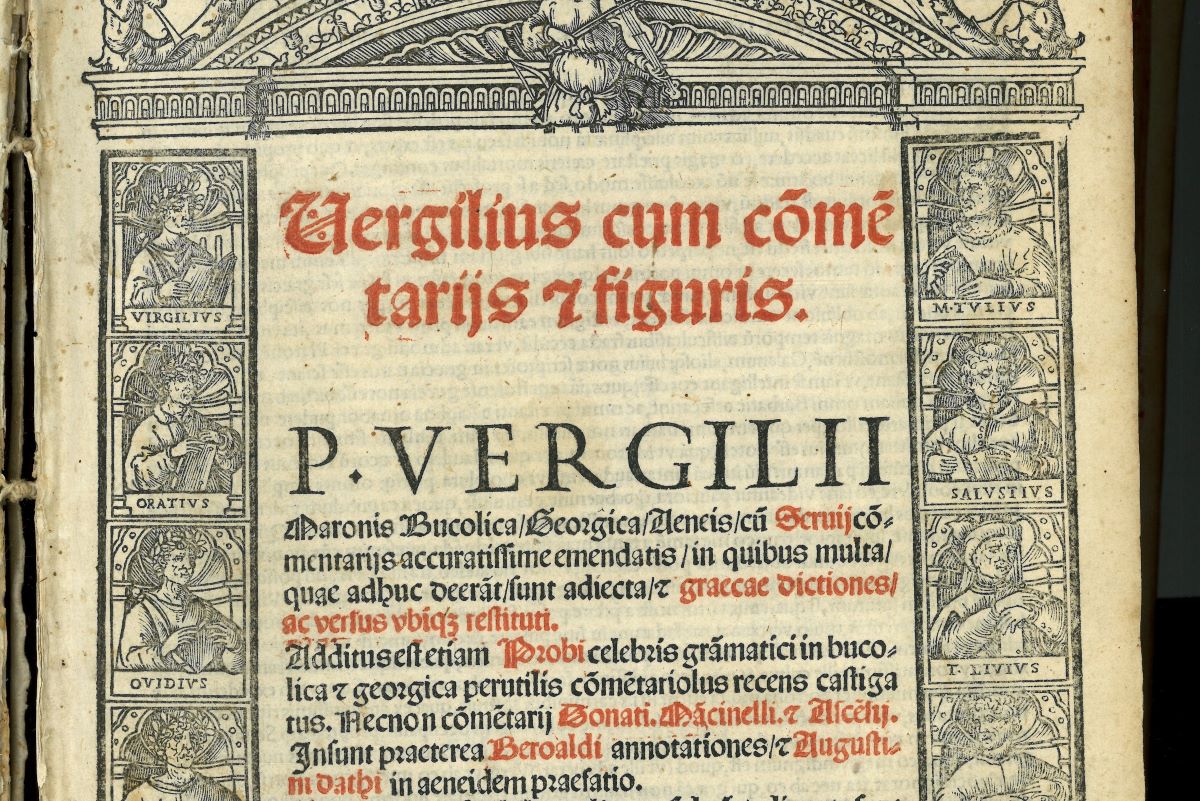 Vergilius cum cōmē
tarijs ⁊ figuris.
P. VERGILII
Maronis Bucolica/Georgica/Aeneis/cū Seruij cō-
mentarijs accuratissime emendatis/in quibus multa/
quae adhuc deerāt/sunt adiecta/⁊ graecae dictiones/
ac versus vbiqꝫ restituti.
Additus est etiam Probi celebris grāmatici in buco-
lica ⁊ georgica perutilis cōmētariolus recens castiga
tus. Necnon cōmētarij Donati. Mācinelli. ⁊ Ascēsij.
Insunt praeterea Beroaldi annotationes/⁊ Augusti-
ni dathi in aeneidem praefatio.
VIRGILIUS
ORATIVS
OVIDIVS
M·TVLIVS
SALVSTIVS
T·LIVIVS